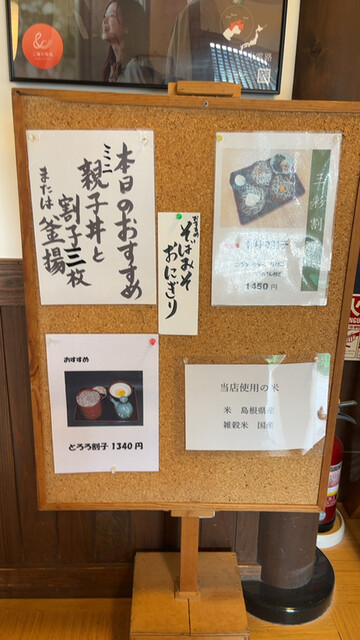 本日のおすすめ
ミニ親子丼と
割子三枚
または釜揚
おすすめ
そばみそ
おにぎり
1450円
おすすめ
とろろ割子 1340円
当店使用の米
米 島根県産
雑穀米 国産